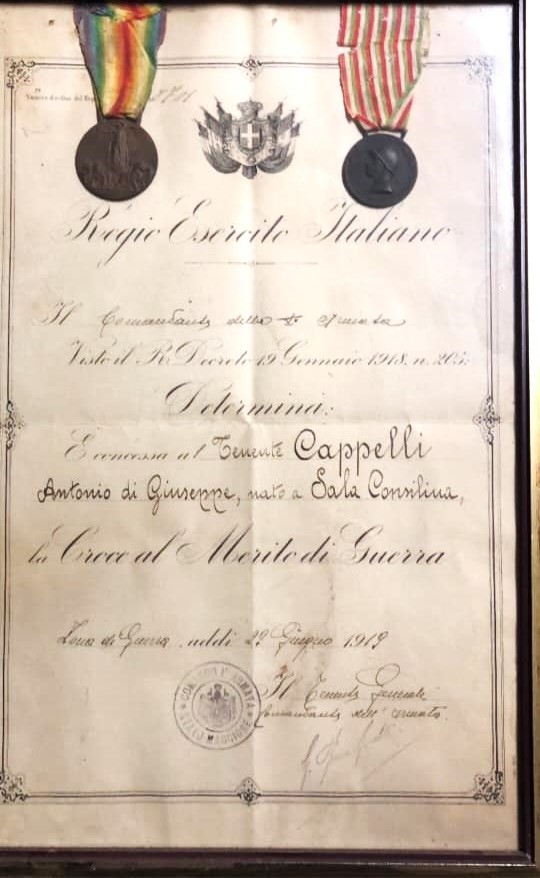 Numero d'ordine del Reg
Regio Esercito Italiano
Il Comandante della 1ª Armata
Visto il R. Decreto 19 Gennaio 1918. n. 205:
Determina:
È concessa al Tenente Cappelli
Antonio di Giuseppe, nato a Sala Consilina,
la Croce al Merito di Guerra
Zona di Guerra, addì 22 Giugno 1919
COMANDO 1ª ARMATA
STATO MAGGIORE
Il Tenente Generale
Comandante dell'Armata